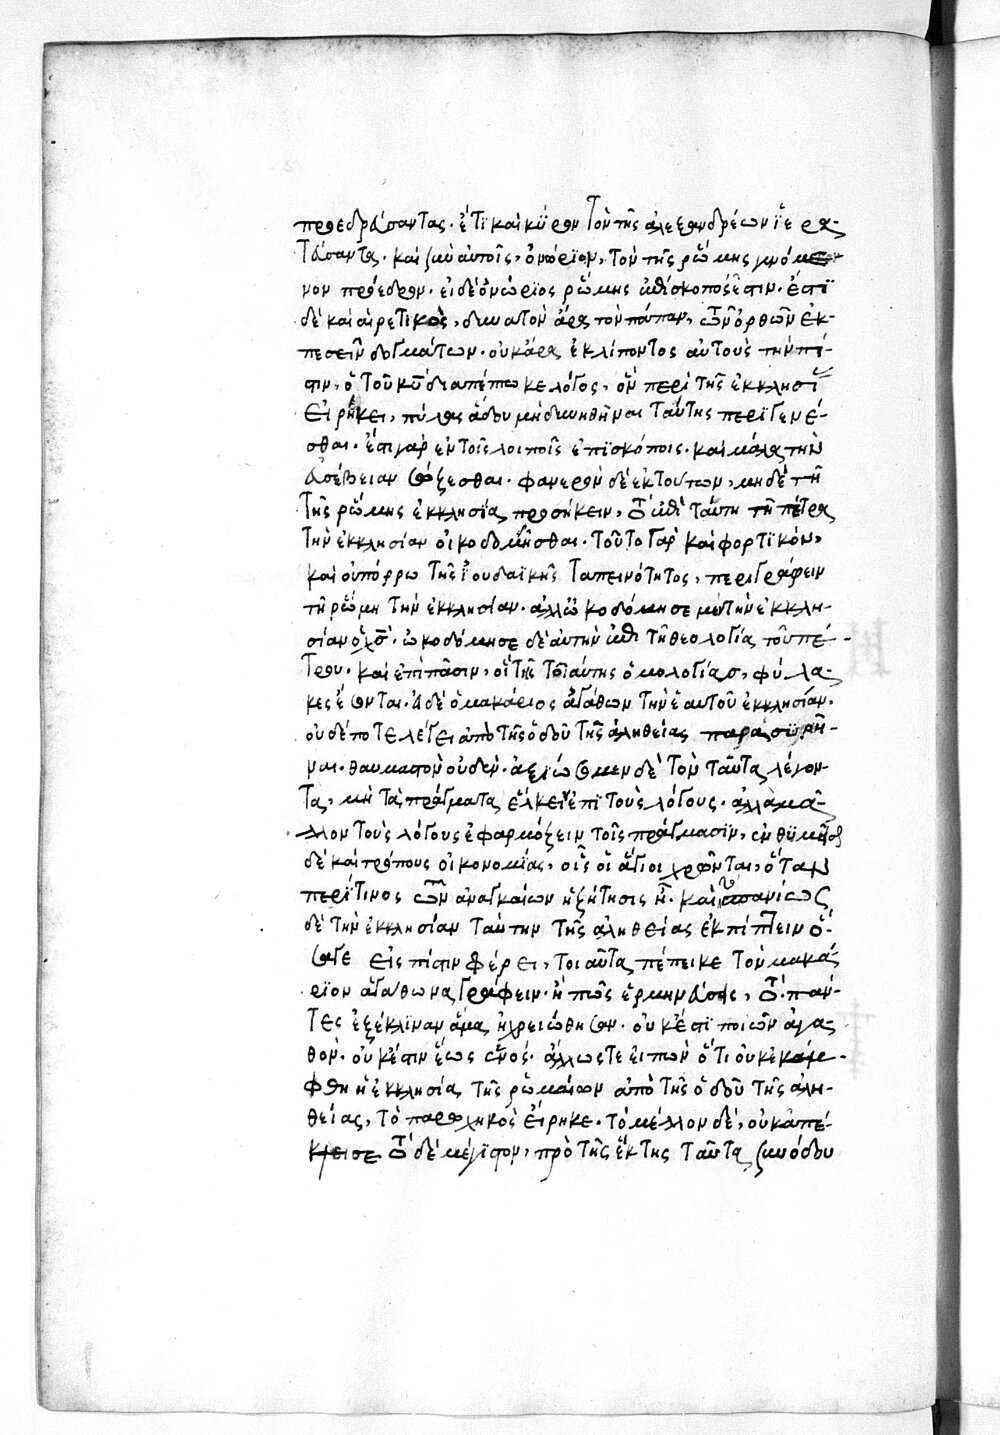 προεδράσαντας. ἔτι καὶ κῦρον τὸν τῆς ἀλεξανδρέων ἱερα-
τεύσαντα. καὶ σὺν αὐτοῖς, ὀνώριον, τὸν τῆς ῥώμης γενόμε-
νον πρόεδρον. εἰ δὲ ὀνώριος ῥώμης ἐπίσκοπός ἐστιν. ἔστι
δὲ καὶ αἱρετικὸς, δυνατὸν ἄρα τὸν πάπαν, τῶν ὀρθῶν ἐκ-
πεσεῖν δογμάτων. οὐκ ἄρα ἐκλίποντος αὐτοὺς τὴν πί-
στιν, ὁ τοῦ κυ διαπέπτωκε λόγος, ὃν περὶ τῆς ἐκκλησί
εἰρήκει, πύλας ἅδου μὴ δυνηθῆναι ταύτης περιγενέ-
σθαι. ἔστι γὰρ ἐν τοῖς λοιποῖς ἐπισκόποις. καὶ μάλα τὴν
εὐσέβειαν σώζεσθαι. φανερὸν δὲ ἐκ τούτων, μηδὲ τῆ
τῆς ῥώμης ἐκκλησία προσήκειν, τὸ ἐπὶ ταύτη τῆ πέτρα
τὴν ἐκκλησίαν οἰκοδομῆσθαι. τοῦτο γὰρ καὶ φορτικὸν,
καὶ οὐ πόρρω τῆς ἰουδαϊκῆς ταπεινότητος, περιγράφειν
τῆ ῥώμη τὴν ἐκκλησίαν. ἀλλ' ὠκοδόμησε μὲν τὴν ἐκκλη-
σίαν ὁ χς. ὠκοδόμησε δὲ αὐτὴν ἐπὶ τῆ θεολογία τοῦ πέ-
τρου. καὶ ἐπὶ πᾶσιν, οἳ τῆς τοιαύτης ὁμολογίας, φύλα-
κες ἔσονται. ἃ δὲ ὁ μακάριος ἀγάθων τὴν ἑαυτοῦ ἐκκλησίαν.
οὐδέποτε λέγει ἀπὸ τῆς ὁδοῦ τῆς ἀληθείας παρασυρῆ-
ναι. θαυμαστὸν οὐδέν. ἀξιώσομεν δὲ τὸν ταῦτα λέγον-
τα, μὴ τὰ πράγματα ἕλκειν ἐπὶ τοὺς λόγους. ἀλλὰ μᾶ-
λλον τοὺς λόγους ἐφαρμόζειν τοῖς πράγμασιν, ἐνθυμηθῆναι
δὲ καὶ τρόπους οἰκονομίας, οἷς οἱ ἅγιοι χρῶνται, ὅταν
περί τινος τῶν ἀναγκαίων ἡ ζήτησις ἦ. καὶ τὸ σπανίως
δὲ τὴν ἐκκλησίαν ταύτην τῆς ἀληθείας ἐκπίπτειν ὅ-
σα γε εἰς πίστιν φέρει, τοιαῦτα πέπεικε τὸν μακά
ριον ἀγάθωνα γράφειν. ἢ πῶς ἑρμηνεύσεις, τὸ. πάν-
τες ἐξέκλιναν ἅμα ἠχρειώθησαν. οὐκ ἔστι ποιῶν ἀγα-
θόν. οὐκ ἔστιν ἕως ἑνός. ἄλλως τε εἰπὼν ὅτι οὐκ ἐκάμ-
φθη ἡ ἐκκλησία τῆς ῥωμαίων ἀπὸ τῆς ὁδοῦ τῆς ἀλη-
θείας, τὸ παρωχηκὸς εἴρηκε. τὸ μέλλον δὲ, οὐκ ἀπέ-
κλεισε τὸ δὲ μέγιστον, πρὸ τῆς ἕκτης ταῦτα συνόδου